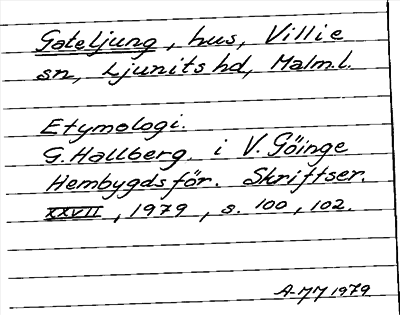 Gateljung, hus, Villie
sn, Ljunits hd, Malm.l.
Etymologi.
G. Hallberg. i V. Göinge
Hembygdsför. Skriftser.
XXVII, 1979, s. 100, 102.
A-MM 1979